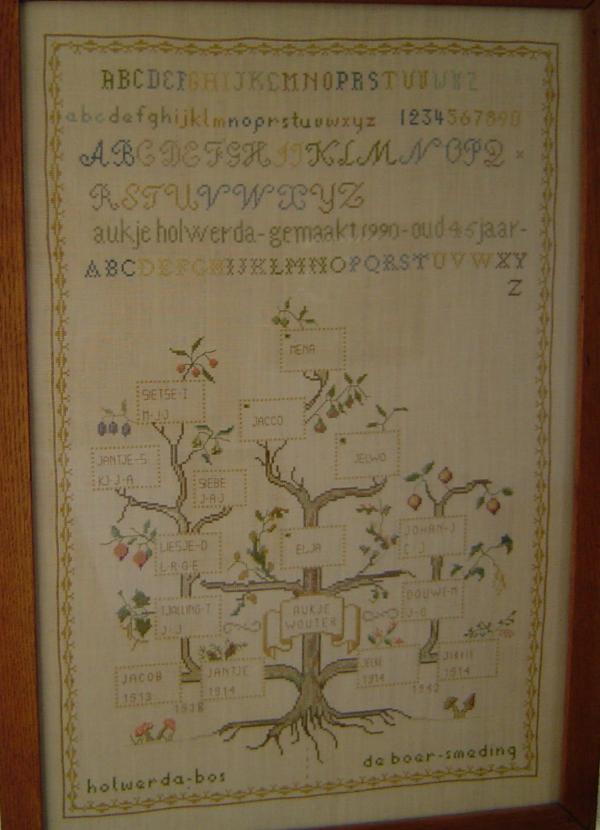 ABCDEFGHIJKLMNOPRSTUVWYZ
abcdefghijklmnoprstuvwxyz 1234567890
ABCDEFGHIJKLMNOPQ
RSTUVWXYZ
aukje holwerda-gemaakt 1990-oud 45 jaar-
ABCDEFGHIJKLMNOPQRSTUVWXY
Z
MENA
SIETSE-I
M-J-J
JACCO
JELWO
JANTJE-S
KJ-J-A
SIEBE
J-A-J
LIESJE-D
L-R-G-E
ELJA
JOHAN-J
TJALLING-T
J-J
AUKJE
WOUTER
DOUWE-M
JACOB
1913
JANTJE
1914
1938
JELLE
1914
1914
1942
holwerda-bos
de boer-smeding